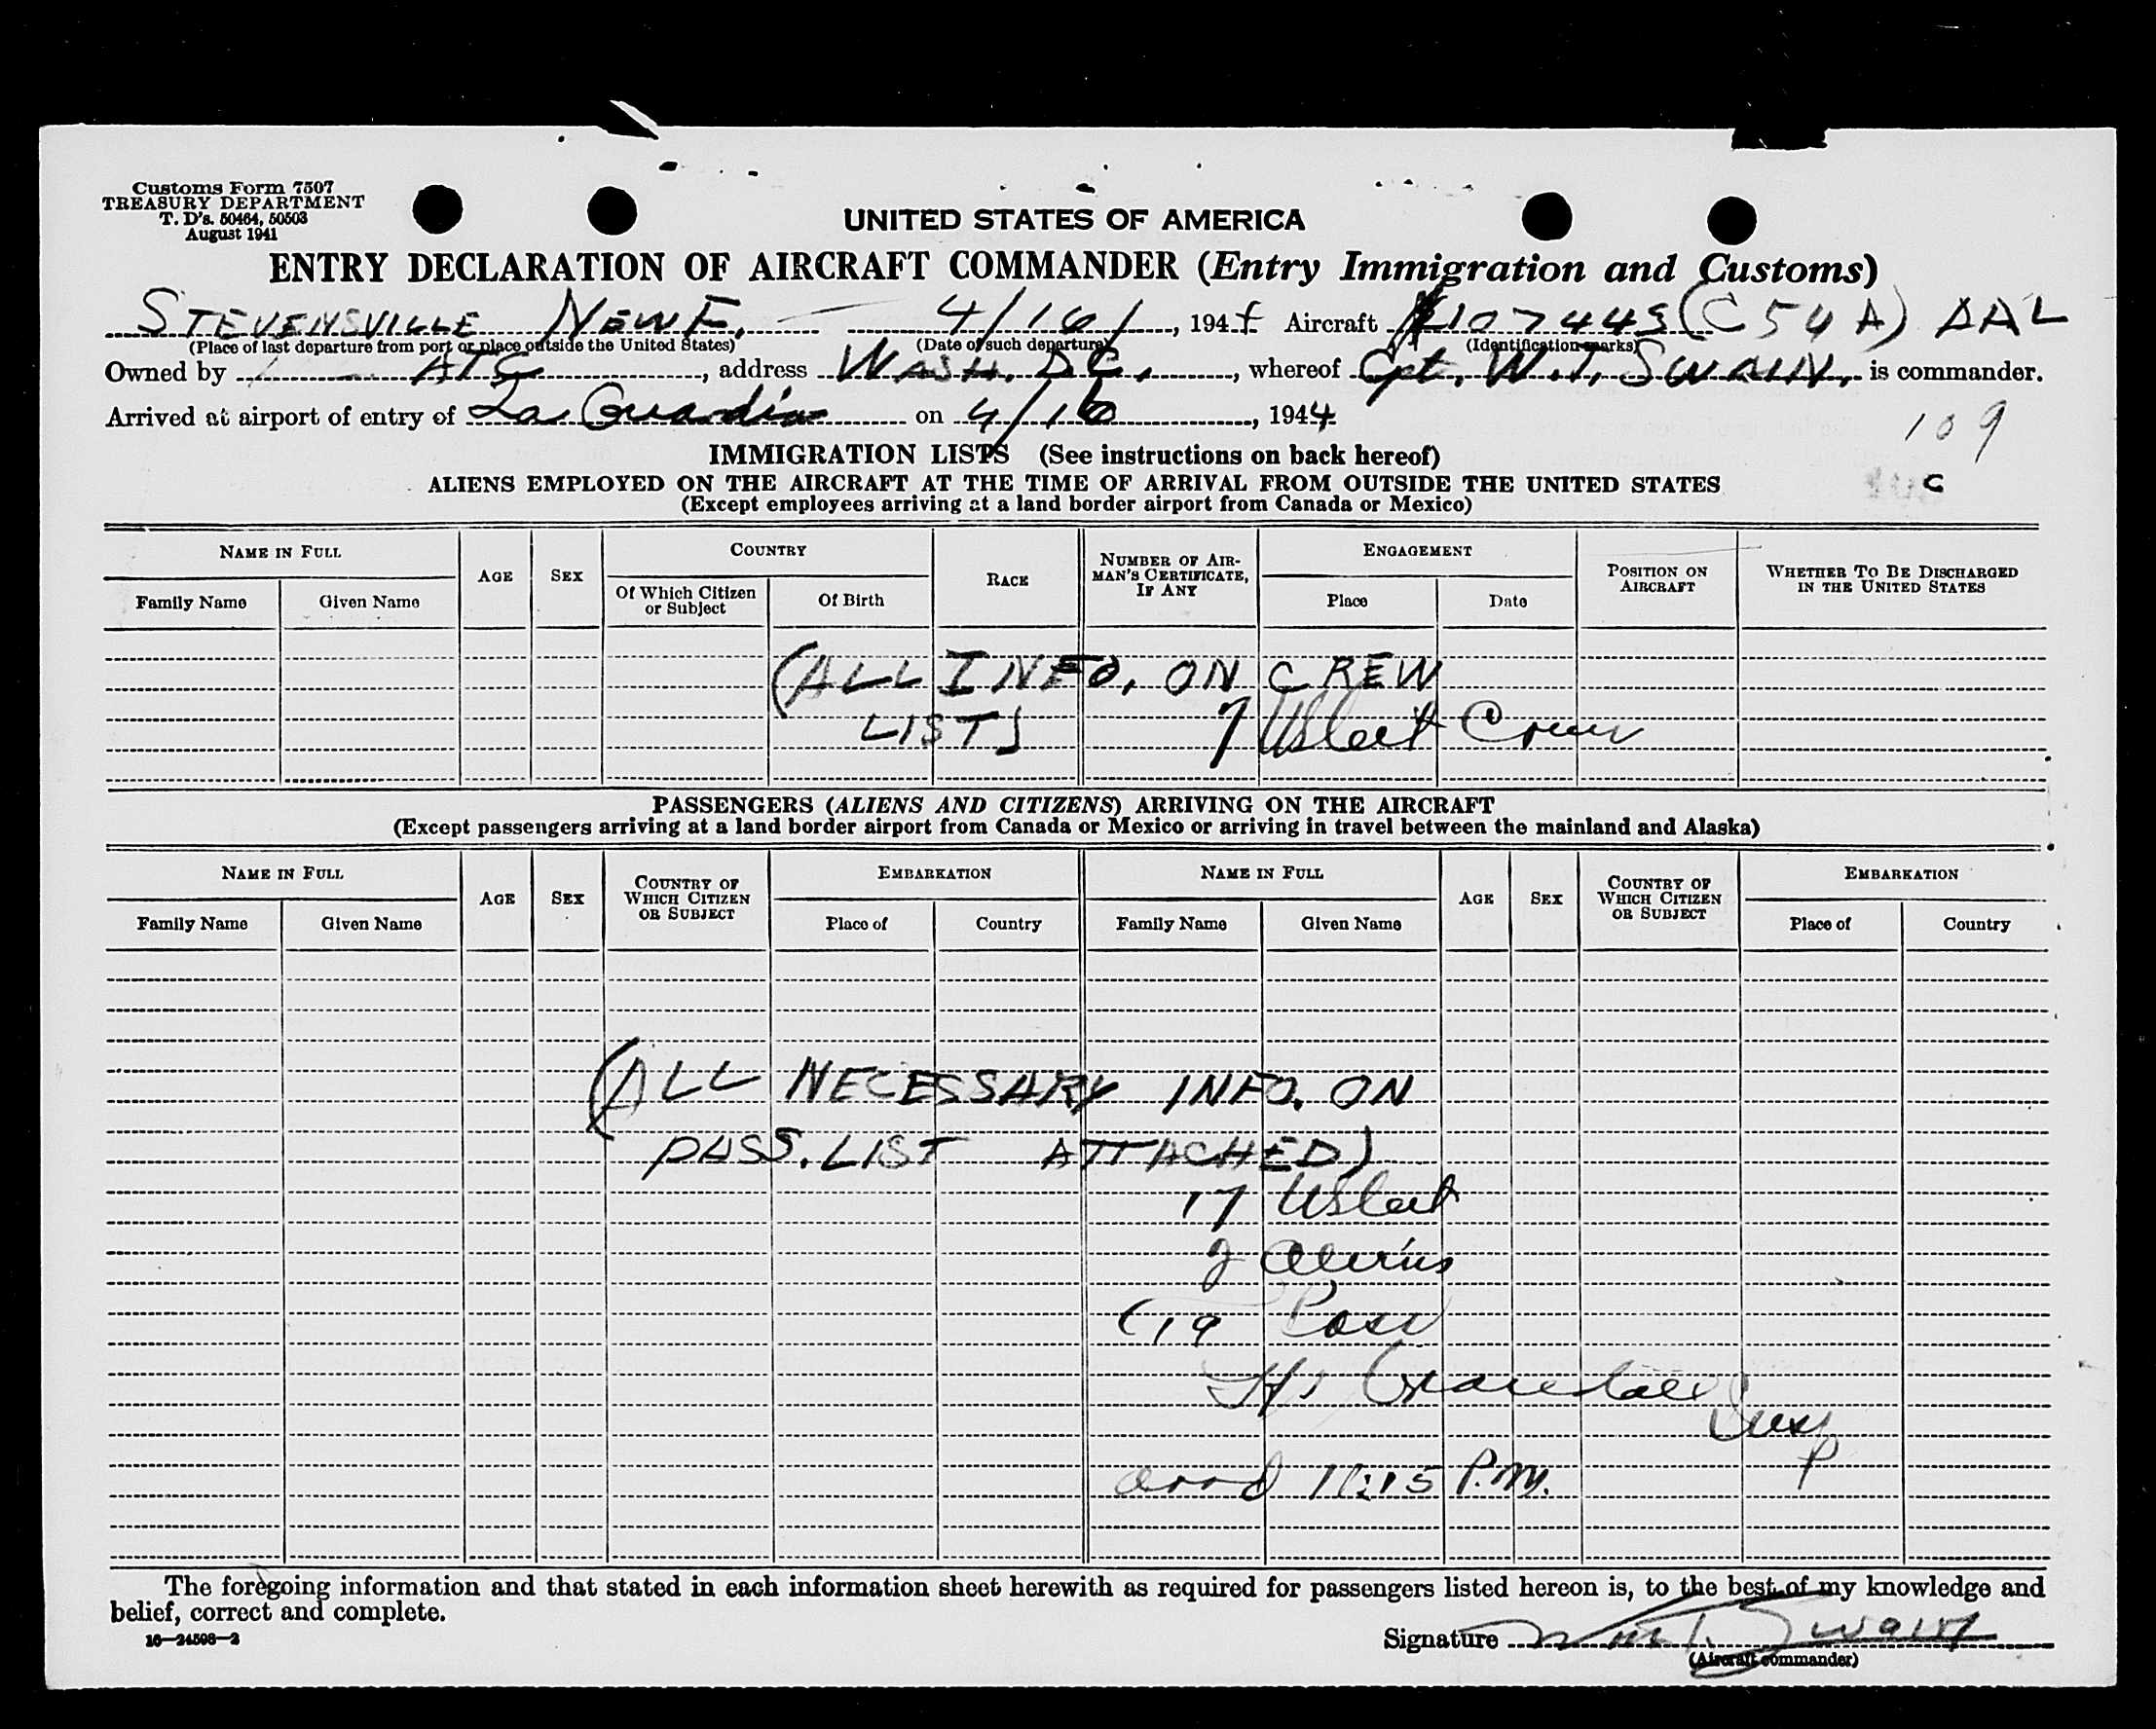 Customs Form 7507
TREASURY DEPARTMENT
T. D's. 50464, 50503
August 1941
UNITED STATES OF AMERICA
ENTRY DECLARATION OF AIRCRAFT COMMANDER (Entry Immigration and Customs)
STEVENSVILLE NEWF. 4/16/, 1944 Aircraft 107445 (C54A) AAL
(Place of last departure from port or place outside the United States) (Date of such departure) (Identification marks)
Owned by ATC, address WASH. DC., whereof Cpt. W.T. SWAIN, is commander.
Arrived at airport of entry of La Guardia on 4/16, 1944
109
IMMIGRATION LISTS (See instructions on back hereof)
ALIENS EMPLOYED ON THE AIRCRAFT AT THE TIME OF ARRIVAL FROM OUTSIDE THE UNITED STATES
C
(Except employees arriving at a land border airport from Canada or Mexico)
NAME IN FULL AGE SEX COUNTRY RACE NUMBER OF AIRMAN'S CERTIFICATE, IF ANY ENGAGEMENT POSITION ON AIRCRAFT WHETHER TO BE DISCHARGED IN THE UNITED STATES
Family Name Given Name Of Which Citizen or Subject Of Birth Place Date
(ALL INFO. ON CREW
LIST) 7 US Cit Crew
PASSENGERS (ALIENS AND CITIZENS) ARRIVING ON THE AIRCRAFT
(Except passengers arriving at a land border airport from Canada or Mexico or arriving in travel between the mainland and Alaska)
NAME IN FULL AGE SEX COUNTRY OF WHICH CITIZEN OR SUBJECT EMBARKATION NAME IN FULL AGE SEX COUNTRY OF WHICH CITIZEN OR SUBJECT EMBARKATION
Family Name Given Name Place of Country Family Name Given Name Place of Country
(ALL NECESSARY INFO. ON
PASS. LIST ATTACHED)
17 US Cit
2 Aliens
(19 Pass
Insp
P
arrd 11:15 P.M.
The foregoing information and that stated in each information sheet herewith as required for passengers listed hereon is, to the best of my knowledge and
belief, correct and complete.
16—24508—2
Signature Wm T. Swain
(Aircraft commander)